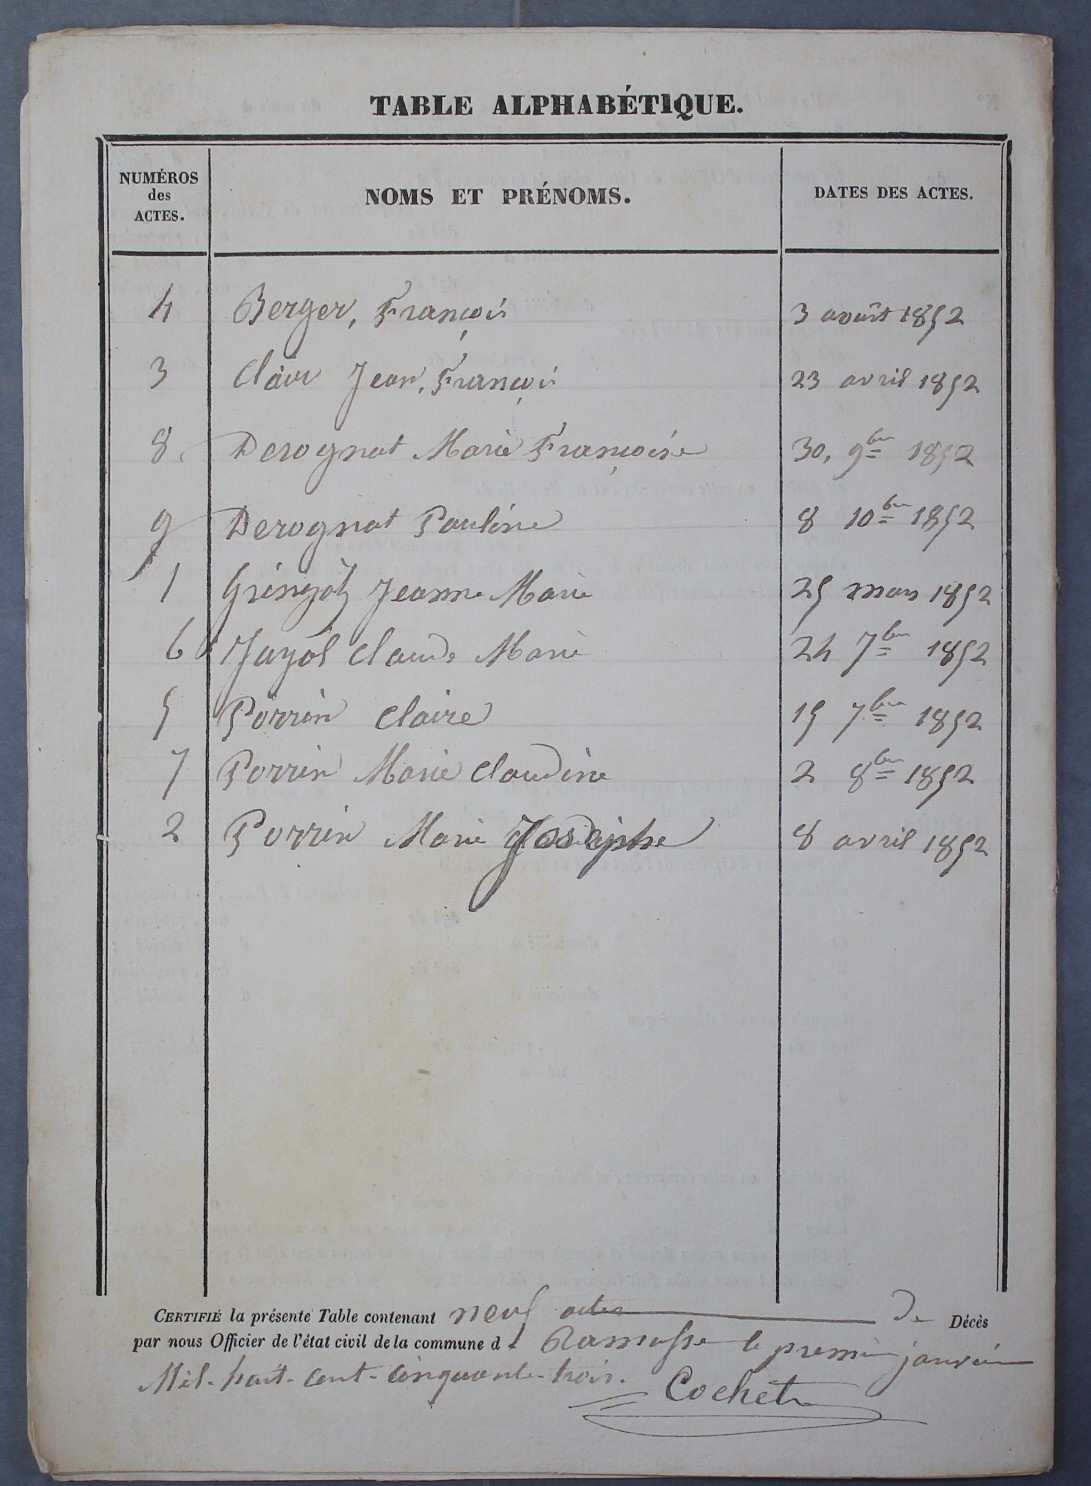 TABLE ALPHABÉTIQUE.
NUMÉROS des ACTES. NOMS ET PRÉNOMS. DATES DES ACTES.
4 Berger, François 3 août 1852
3 Jean, François 23 avril 1852
8 Derognat Marie Françoise 30, 9bre 1852
9 Derognat Pauline 8 10bre 1852
1 Gringoz Jeanne Marie 25 mars 1852
6 Jayol Claude Marie 24 7bre 1852
5 Perrin Claire 15 7bre 1852
7 Perrin Marie Claudine 2 8bre 1852
2 Perrin Marie Josephe 8 avril 1852
CERTIFIÉ la présente Table contenant neuf actes de Décès
par nous Officier de l'état civil de la commune de Ramasse le premier janvier
Mil-huit-cent-cinquante-trois.
Cochet